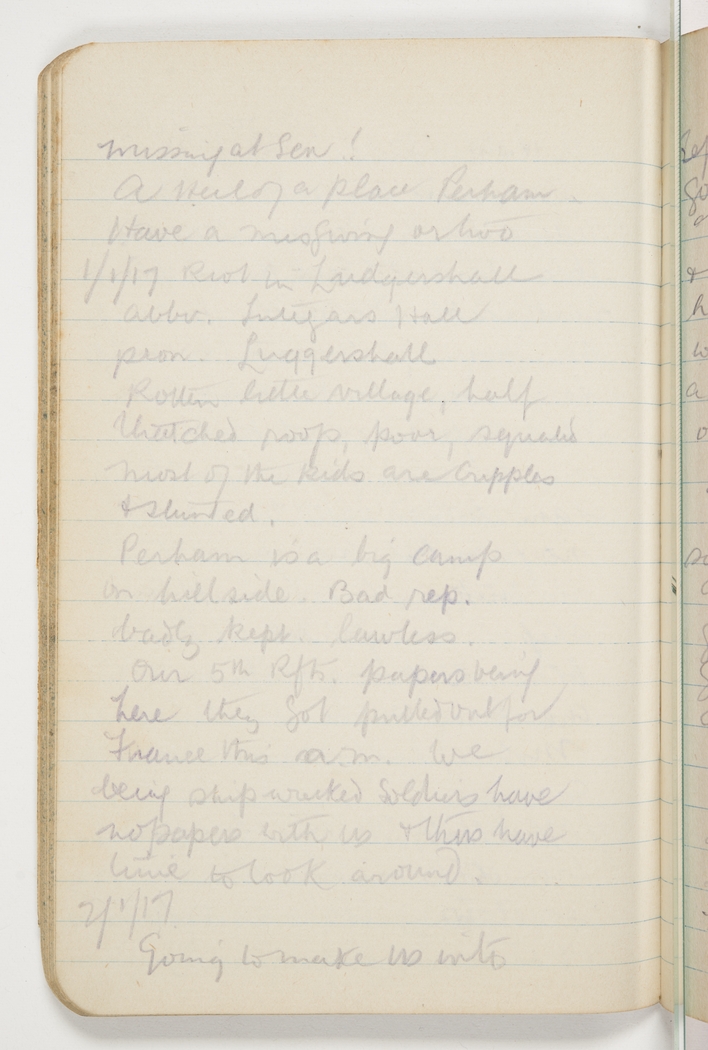 missing at Sea!
A Hell of a place Perham.
Have a misgiving or two
1/1/17 Riot in Ludgershall
abbv. Lutgars Hall
pron. Luggershall
Rotten little village, half
thatched roofs, poor, squalid
most of the kids are cripples
& stunted.
Perham is a big camp
on hillside. Bad rep.
badly kept. lawless.
Our 5th Rfts. papers being
here they got pulled out for
France this a.m. We
being shipwrecked Soldiers have
no papers with us & thus have
time to look around.
2/1/17
Going to make us into